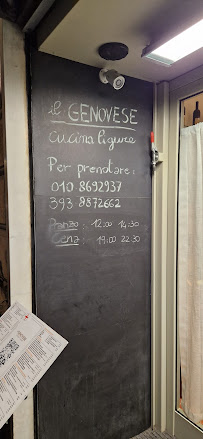 il GENOVESE
cucina ligure
Per prenotare:
010 8692937
393 8872662
Pranzo: 12:00 14:30
Cena: 19:00 22:30